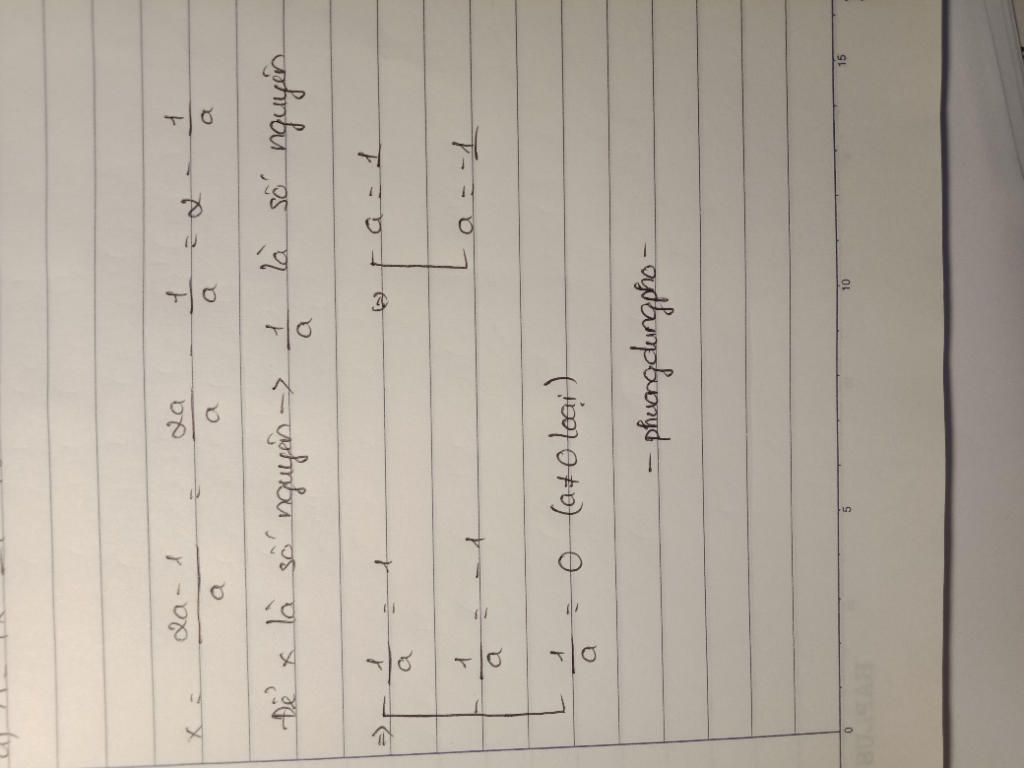 x = \frac{2a-1}{a} = \frac{2a}{a} - \frac{1}{a} = 2 - \frac{1}{a}
Để x là số nguyên -> \frac{1}{a} là số nguyên
=> [ \frac{1}{a} = 1 <=> [ a = 1
\frac{1}{a} = -1 a = -1
\frac{1}{a} = 0 (a≠0 loại)
- phuongdungpho -
0 5 10 15